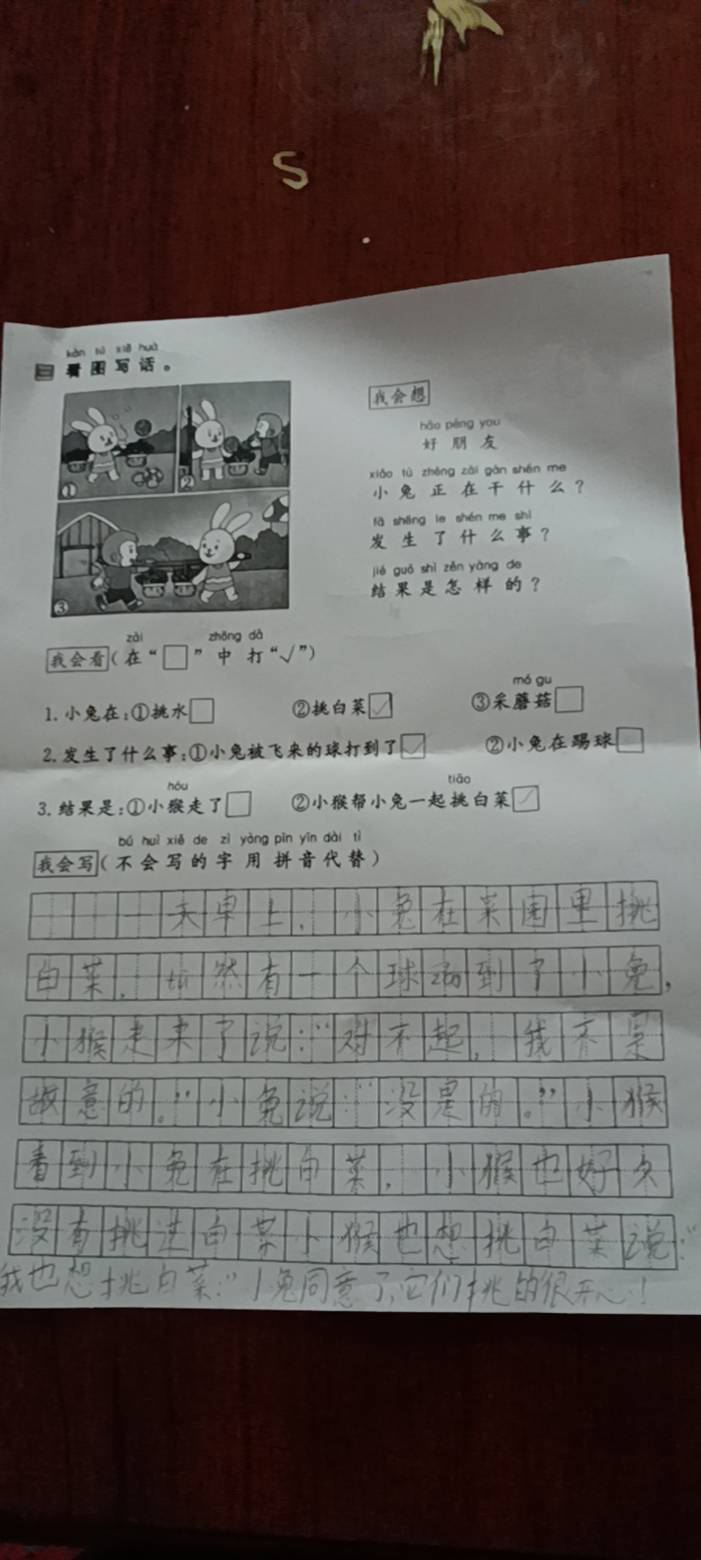 S
kàn tú xiě huà
三 看图写话。
我会想
hǎo péng you
好朋友
xiǎo tù zhèng zài gàn shén me
小兔正在干什么？
fā shēng le shén me shì
发生了什么事？
jié guǒ shì zěn yàng de
结果是怎样的？
①
②
③
zài zhōng dǎ
我会看(在“□”中打“√”)
mó gu
1.小兔在:①挑水□ ②挑白菜☑ ③采蘑菇□
2.发生了什么事:①小兔被飞来的球打到了☑ ②小兔在踢球□
hóu tiāo
3.结果是:①小猴走了□ ②小猴帮小兔一起挑白菜☑
bú huì xiě de zì yòng pīn yīn dài tì
我会写(不会写的字用拼音代替)
一天早上,小兔在菜园里挑
白菜,然有一个球到了小兔,
小猴走来了说:“对不起,我不是
故意的。”小兔说:“没是的。”小猴
看到小兔在挑白菜,小猴也好久
没有挑过白菜小猴也想挑白菜说:“
我也想挑白菜:”小兔同意了,它们挑的很开心!